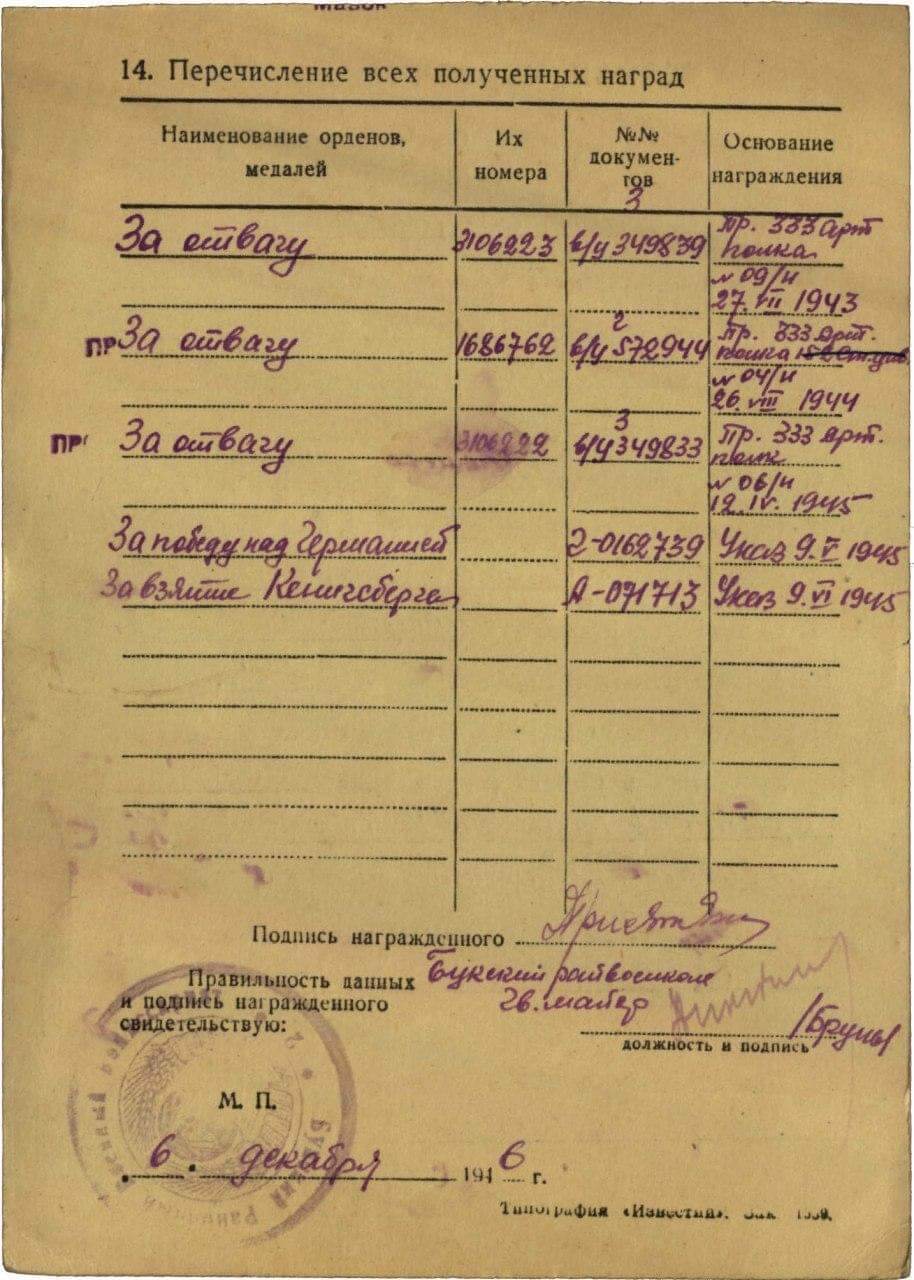 14. Перечисление всех полученных наград
Наименование орденов, медалей
Их номера
№№ докумен-тов
Основание награждения
3
За отвагу 3106223 в/у 349839 Пр. 333 арт
полка
№ 09/н
27.VII 1943
2
ПР За отвагу 1686762 в/у 572944 Пр. 333 арт.
полка
№ 04/н
26.VIII 1944
3
ПР За отвагу 3106222 в/у 349833 Пр. 333 арт.
полк
№ 06/н
12.IV.1945
За победу над Германией 2-0162739 Указ 9.V 1945
За взятие Кенигсберга А-071713 Указ 9.VI 1945
Подпись награжденного
Правильность данных
и подпись награжденного
свидетельствую:
Букский райвоенком
гв. майор
должность и подпись
М. П.
6 декабря 1946 г.
Типография «Известия». Зак.